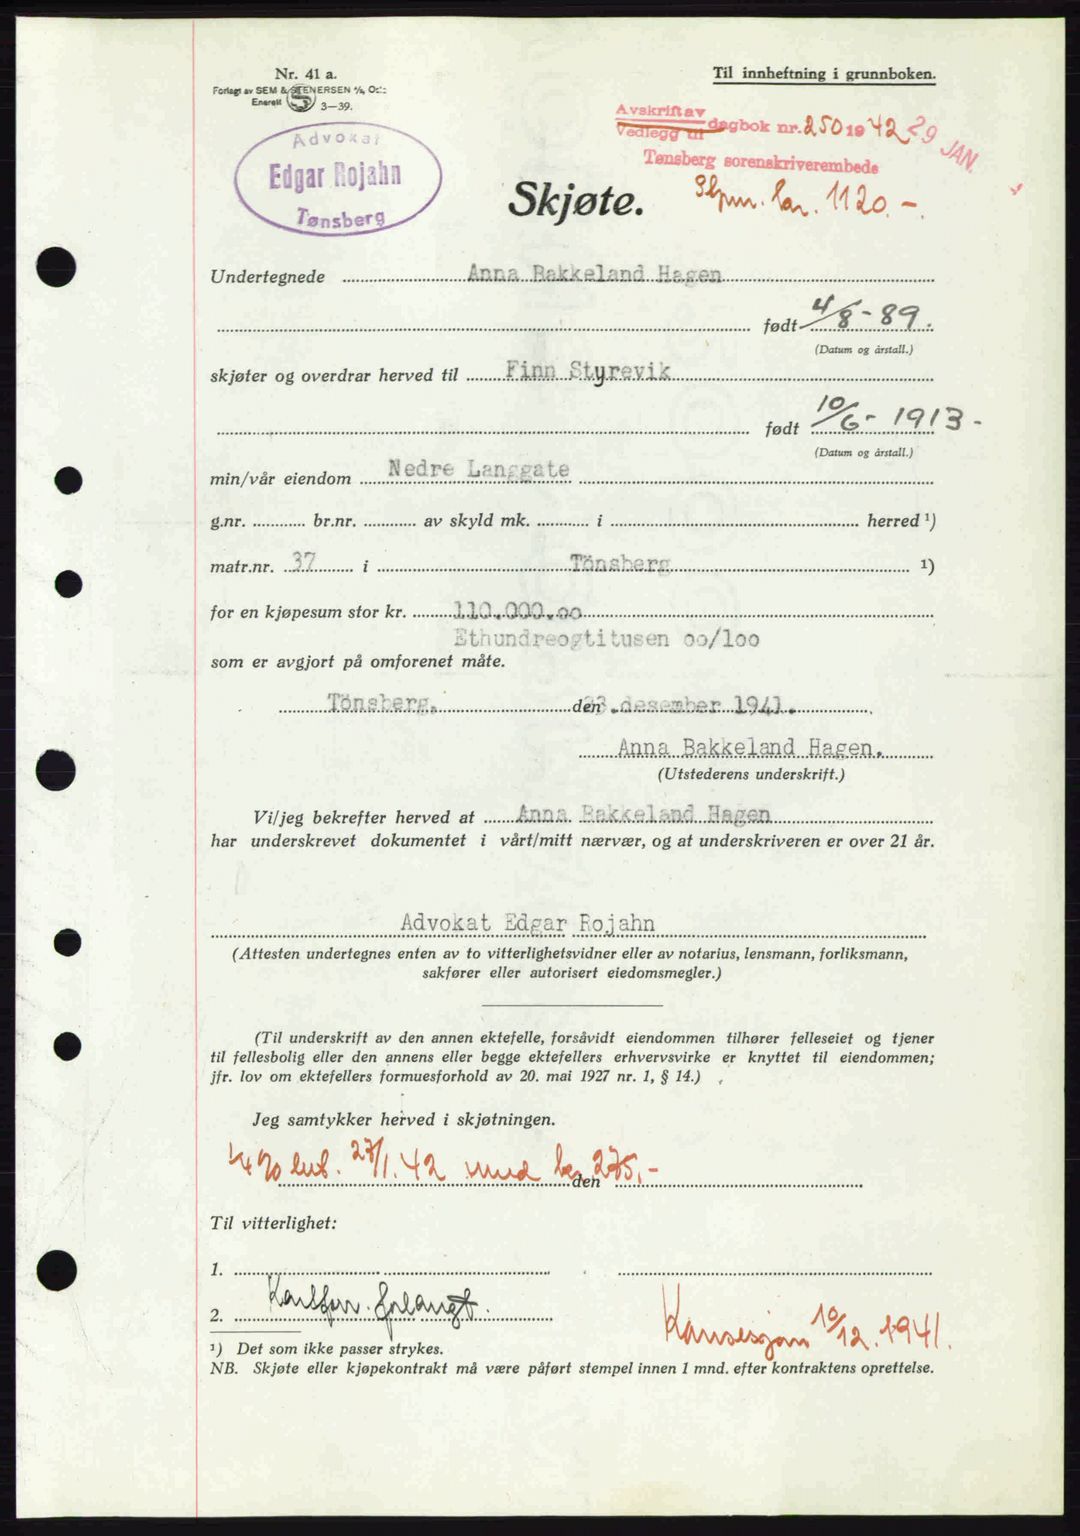 Nr. 41 a.
Til innheftning i grunnboken.
Forlagt av SEM & STENERSEN A/S, Oslo
Enerett 3–39.
Avskrift av
Vedlegg til dagbok nr. 250 1942 29 JAN.
Tønsberg sorenskriverembede
Advokat
Edgar Rojahn
Tønsberg
Skjøte.
1120.-
Undertegnede Anna Bakkeland Hagen
født 4/8-89.
(Datum og årstall.)
skjøter og overdrar herved til Finn Styrevik
født 10/6-1913-
(Datum og årstall.)
min/vår eiendom Nedre Langgate
g.nr. br.nr. av skyld mk. i herred ¹)
matr.nr. 37 i Tönsberg ¹)
for en kjøpesum stor kr. 110.000.oo
Ethundreogtitusen oo/loo
som er avgjort på omforenet måte.
Tönsberg, den 23. desember 1941.
Anna Bakkeland Hagen.
(Utstederens underskrift.)
Vi/jeg bekrefter herved at Anna Bakkeland Hagen
har underskrevet dokumentet i vårt/mitt nærvær, og at underskriveren er over 21 år.
Advokat Edgar Rojahn
(Attesten undertegnes enten av to vitterlighetsvidner eller av notarius, lensmann, forliksmann,
sakfører eller autorisert eiedomsmegler.)
(Til underskrift av den annen ektefelle, forsåvidt eiendommen tilhører felleseiet og tjener
til fellesbolig eller den annens eller begge ektefellers erhvervsvirke er knyttet til eiendommen;
jfr. lov om ektefellers formuesforhold av 20. mai 1927 nr. 1, § 14.)
Jeg samtykker herved i skjøtningen.
27/1.42 med kr 275,-
den
Til vitterlighet:
1.
2. forlangt.
10/12.1941.
¹) Det som ikke passer strykes.
NB. Skjøte eller kjøpekontrakt må være påført stempel innen 1 mnd. efter kontraktens oprettelse.